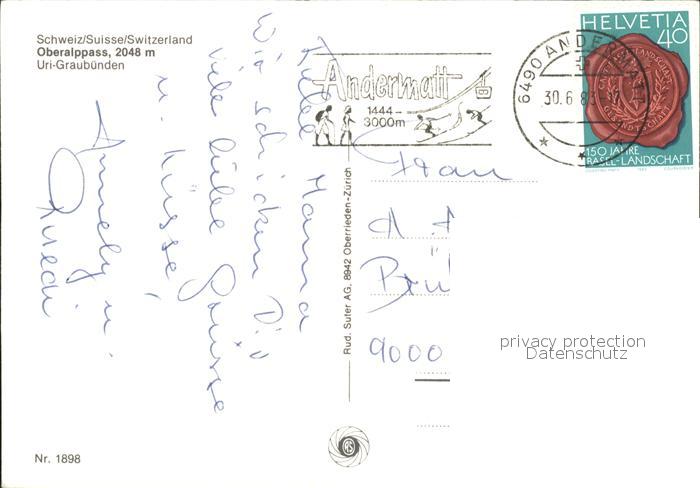 Schweiz/Suisse/Switzerland
Oberalppass, 2048 m
Uri-Graubünden
Mama
Wir schicken Dir
viele liebe Grüsse
u. Küsse!
Annely u.
Ruedi
Nr. 1898
Rud. Suter AG, 8942 Oberrieden-Zürich
Andermatt
1444-
3000m
6490 ANDERMATT
30.6.83
HELVETIA
40
150 JAHRE
BASEL-LANDSCHAFT
Frau
9000
privacy protection
Datenschutz